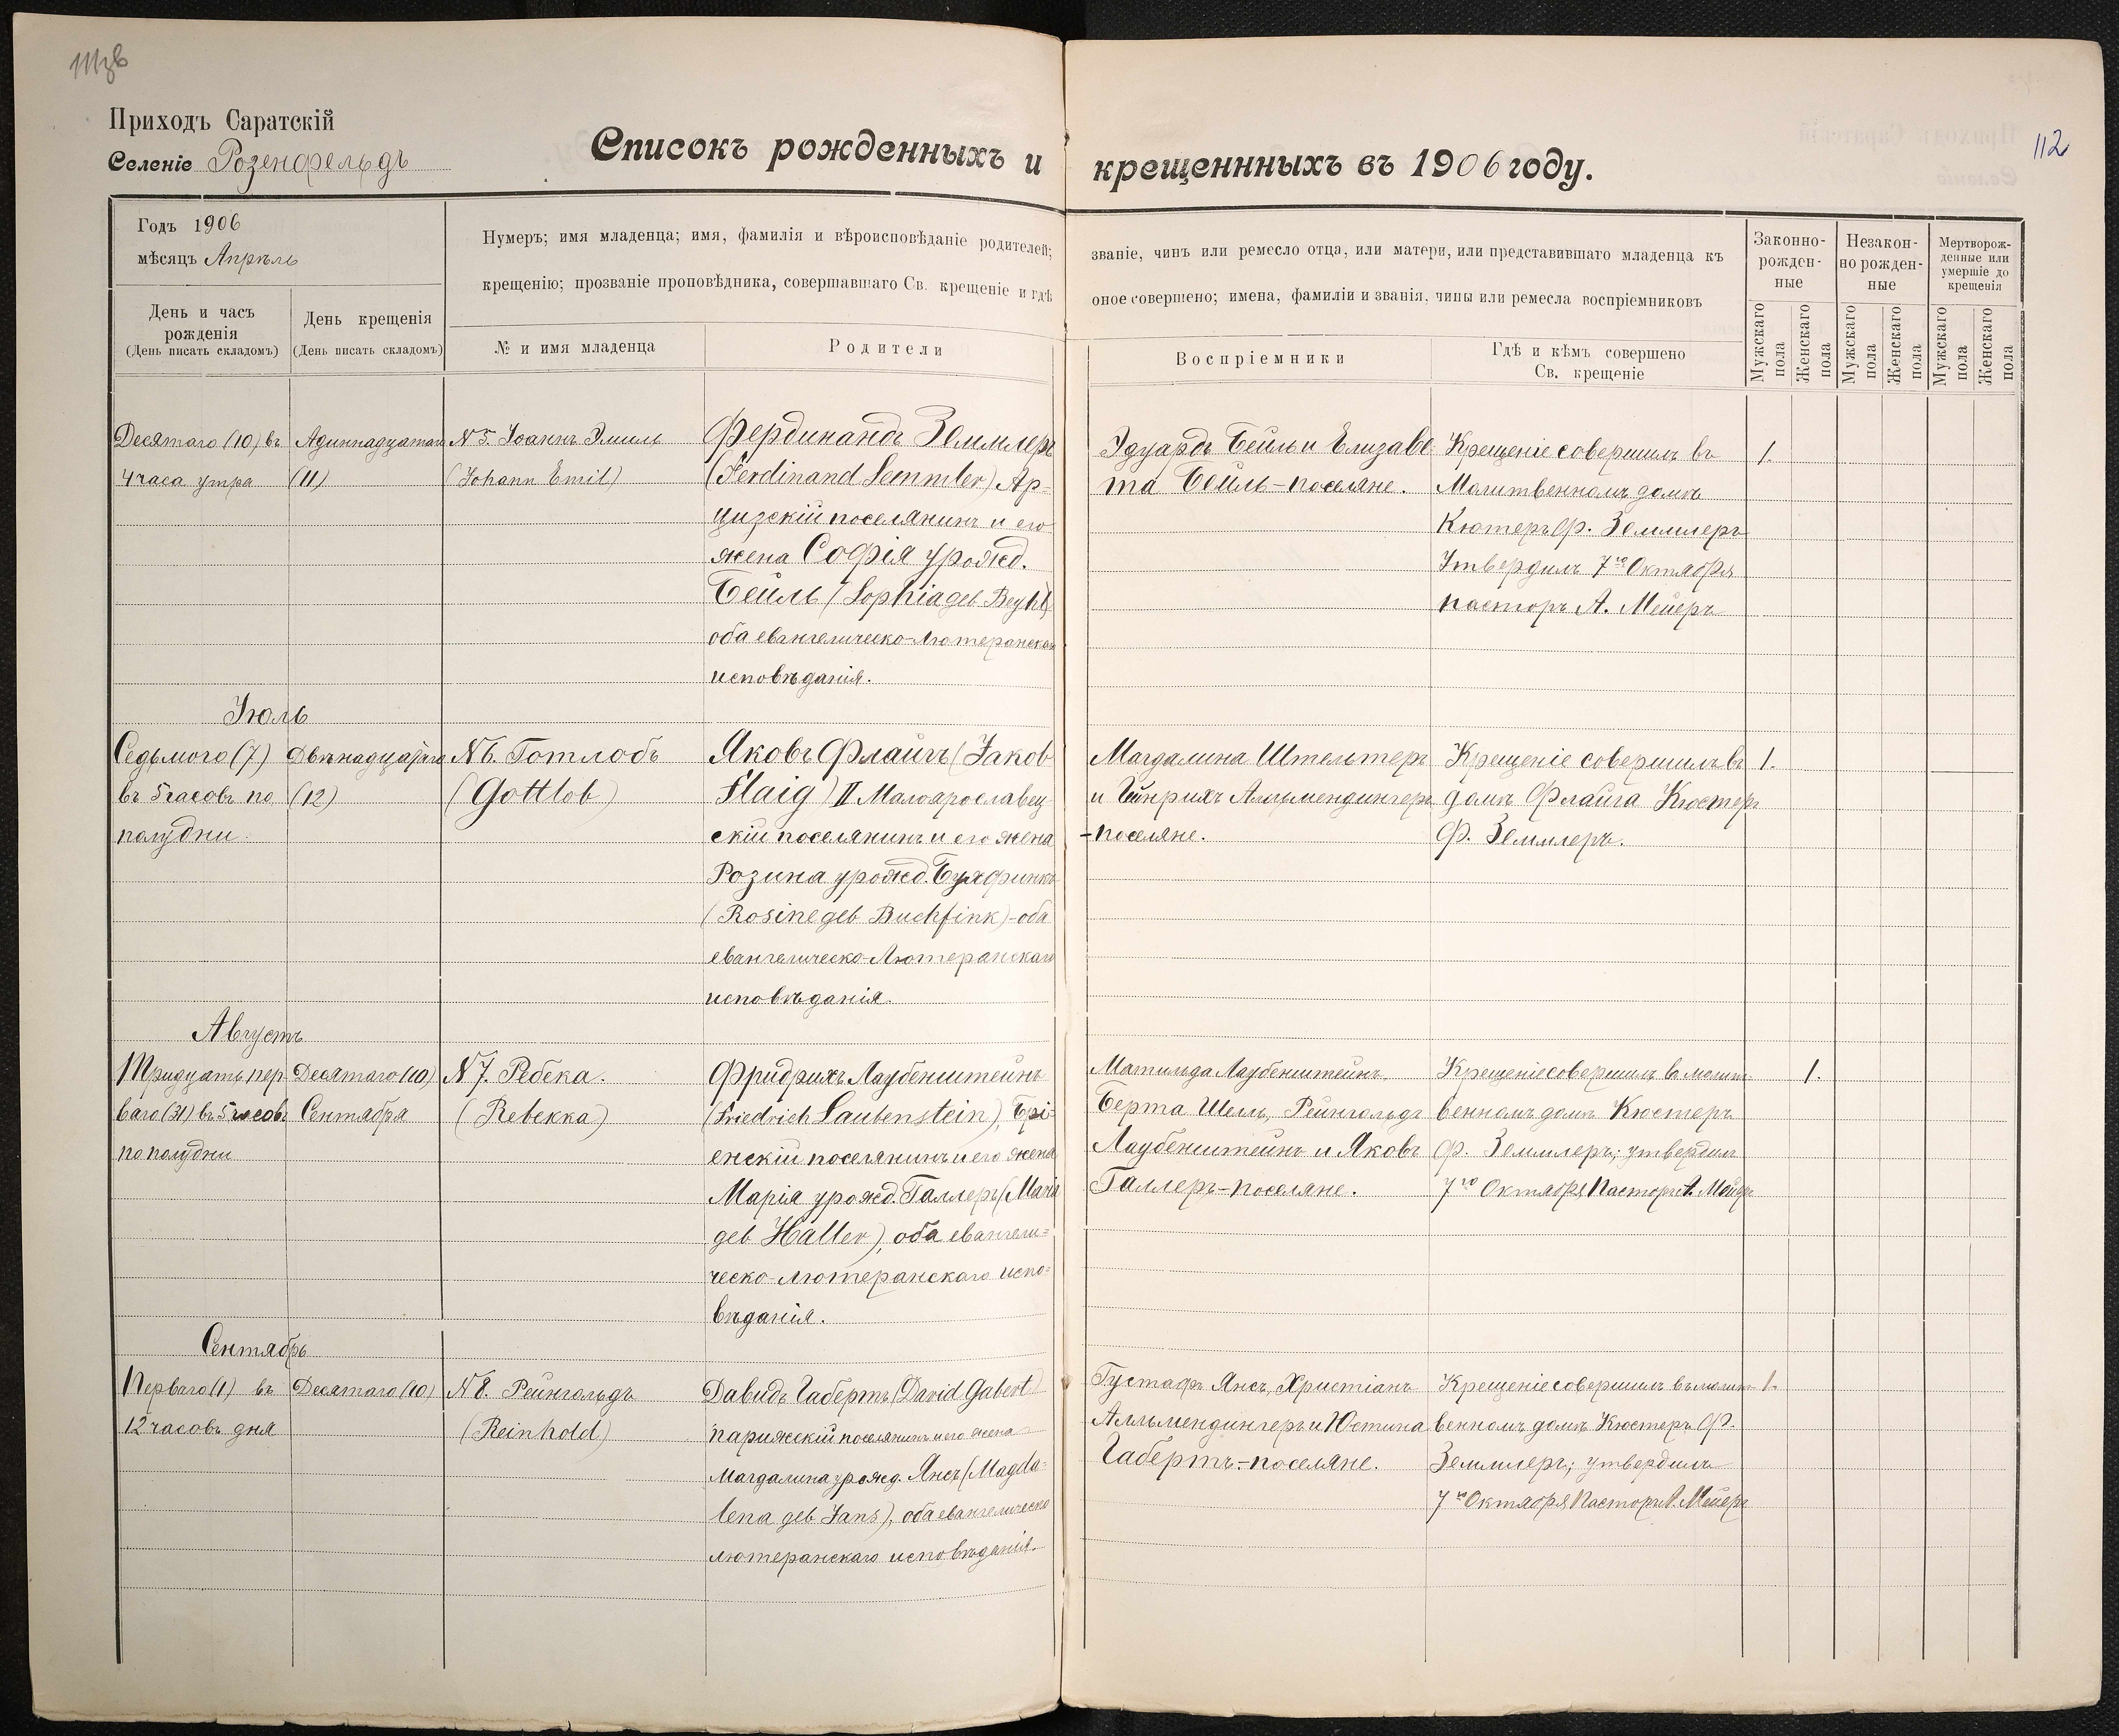 112
Приходъ Саратскій
Селеніе Розенфельдъ
Списокъ рожденныхъ и крещеннныхъ въ 1906 году.
Годъ 1906
мѣсяцъ Апрѣль
Нумеръ; имя младенца; имя, фамилія и вѣроисповѣданіе родителей; званіе, чинъ или ремесло отца, или матери, или представившаго младенца къ
крещенію; прозваніе проповѣдника, совершавшаго Св. крещеніе и гдѣ оное совершено; имена, фамиліи и званія, чины или ремесла воспріемниковъ
Законно-
рожден-
ные
Незакон-
но рожден-
ные
Мертворож-
денные или
умершіе до
крещенія
День и часъ
рожденія
(День писать складомъ)
День крещенія
(День писать складомъ)
№ и имя младенца
Родители
Воспріемники
Гдѣ и кѣмъ совершено
Св. крещеніе
Мужскаго пола
Женскаго пола
Мужскаго пола
Женскаго пола
Мужскаго пола
Женскаго пола
Десятаго (10) въ
4 часа утра
Адиннадцатаго
(11)
N 5. Іоаннъ Эмиль
(Johann Emil)
Фердинандъ Земмлеръ
(Ferdinand Semmler) Ар-
цизскій поселянинъ и его
жена Софія урожд.
Бейль (Sophia geb Beyhl)
оба евангелическо-лютеранскаго
исповѣданія.
Эдуардъ Бейль и Елизаве
та Бейль - поселяне.
Крещеніе совершилъ въ
Молитвенномъ домѣ
Кюстеръ Ф. Земмлеръ
Утвердилъ 7го Октября
пасторъ А. Мейеръ
1.
Іюль
Седьмого (7)
въ 5 часовъ по
полудни.
Двѣнадцатаго
(12)
N 6. Готлобъ
(Gottlob)
Яковъ Флайгъ (Jakob
Flaig) II Малоярославец
скій поселянинъ и его жена
Розина урожд. Бухфинкъ
(Rosine geb Buchfink) - оба
евангелическо-Лютеранскаго
исповѣданія.
Магдалина Штельтеръ
и Гейнрихъ Алльмендингеръ
- поселяне.
Крещеніе совершилъ въ
домѣ Флайга Кюстеръ
Ф. Земмлеръ.
1.
Августъ
Тридцать пер
ваго (31) въ 5 часовъ
по полудни
Десятаго (10)
Сентября
N 7. Ребека.
(Rebekka)
Фридрихъ Лаубенштейнъ
(Friedrich Laubenstein), Брі-
енскій поселянинъ и его жена
Марія урожд. Галлеръ (Maria
geb Haller), оба евангели=
ческо-лютеранскаго испо=
вѣданія.
Матильда Лаубенштейнъ.
Берта Шелль, Рейнгольдъ
Лаубенштейнъ и Яковъ
Галлеръ - поселяне.
Крещеніе совершилъ въ молит-
венномъ домѣ Кюстеръ
Ф. Земмлеръ; утвердилъ
7го Октября Пасторъ А. Мейеръ
1.
Сентябрь
Перваго (1) въ
12 часовъ дня
Десятаго (10)
N 8. Рейнгольдъ
(Reinhold)
Давидъ Габертъ (David Gabert)
парижскій поселянинъ и его жена
Магдалина урожд. Янсъ (Magda=
lena geb Jans), оба евангелическо
лютеранскаго исповѣданія.
Густафъ Янсъ, Христіанъ
Алльмендингеръ и Юстина
Габертъ - поселяне.
Крещеніе совершилъ въ молит-
венномъ домѣ Кюстеръ Ф.
Земмлеръ; утвердилъ
7го Октября Пасторъ А. Мейеръ
1.